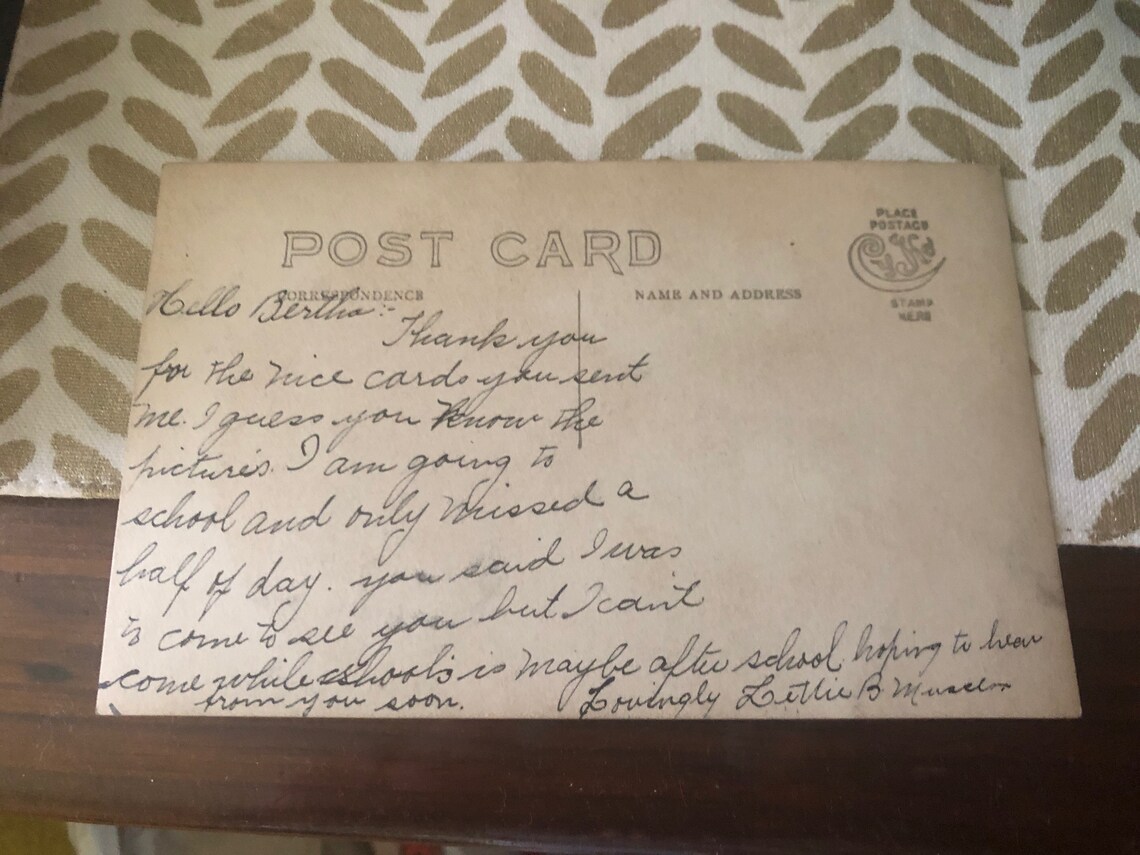 POST CARD
PLACE
POSTAGE
CYKO
STAMP
HERE
CORRESPONDENCE
NAME AND ADDRESS
Hello Bertha:-
Thank you
for the nice cards you sent
me. I guess you know the
pictures. I am going to
school and only missed a
half of day. you said I was
to come to see you but I can't
come while schools is maybe after school hoping to hear
from you soon.
Lovingly Lettie B